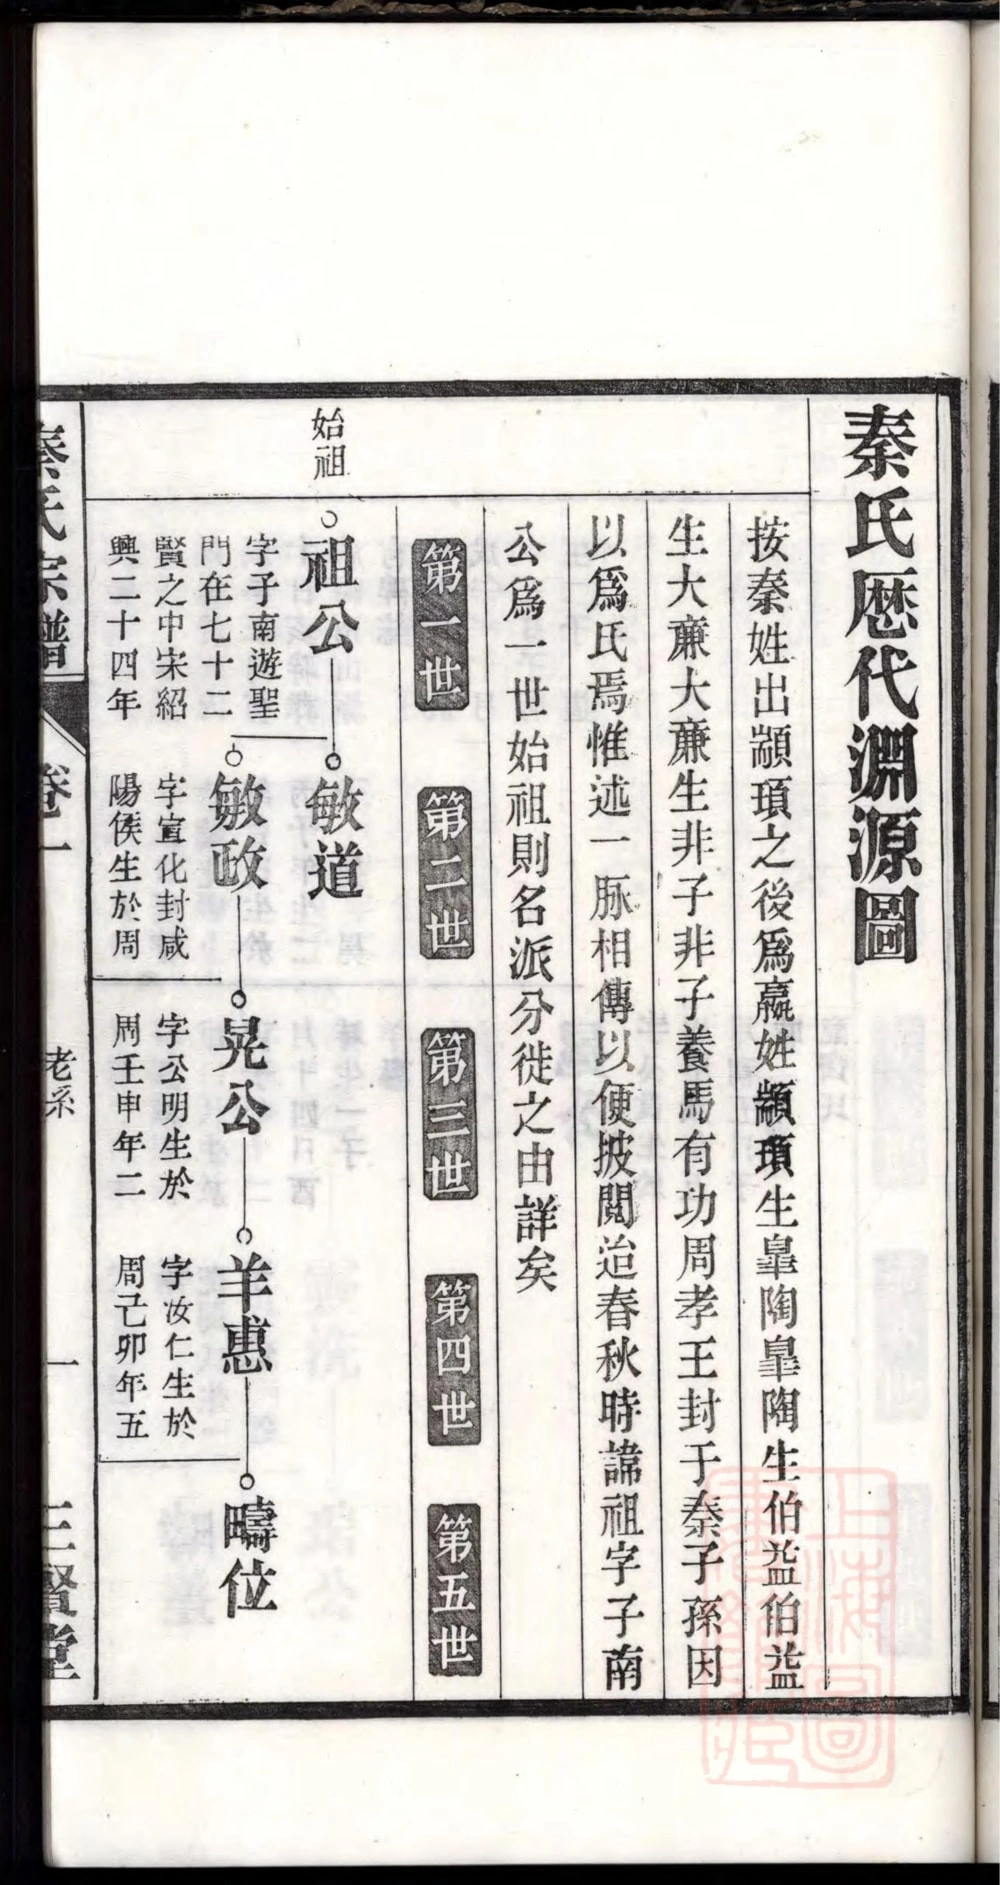 秦氏厯代淵源圖
按秦姓出顓頊之後爲嬴姓顓頊生臯陶臯陶生伯益伯益
生大亷大亷生非子非子養馬有功周孝王封于秦子孫因
以爲氏焉惟述一脉相傳以便披閲迨春秋時諱祖字子南
公爲一世始祖則名派分徙之由詳矣
第一世
第二世
第三世
第四世
第五世
始祖
祖公
敏道
字子南遊聖
門在七十二
賢之中宋紹
興二十四年
敏政
晃公
羊惠
疇位
字宣化封咸
陽侯生於周
字公明生於
周壬申年二
字汝仁生於
周己卯年五
秦氏宗譜
卷一
老系
一
三賢堂
上海圖
書館藏